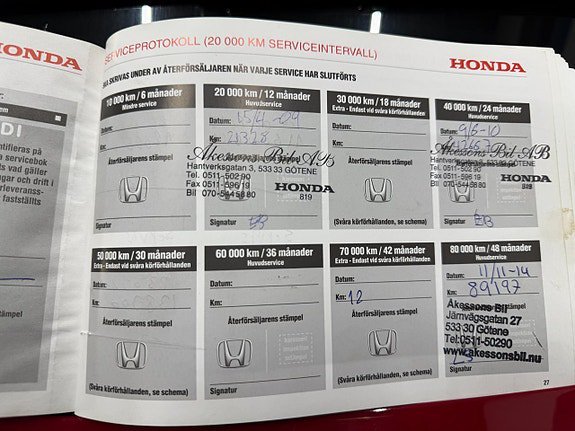 HONDA
SERVICEPROTOKOLL (20 000 KM SERVICEINTERVALL)
HONDA
SKRIVAS UNDER AV ÅTERFÖRSÄLJAREN NÄR VARJE SERVICE HAR SLUTFÖRTS
10 000 km / 6 månader
Mindre service
Datum:
Km:
Återförsäljarens stämpel
Signatur
20 000 km / 12 månader
Huvudservice
Datum:
Km: 21328
Återförsäljarens stämpel
Åkessons Bil AB
Hantverksgatan 3, 533 33 GÖTENE
Tel. 0511-502 90
Fax 0511-596 19
Bil 070-544 58 80
HONDA
819
Signatur
30 000 km / 18 månader
Extra - Endast vid svåra körförhållanden
Datum:
Km:
Återförsäljarens stämpel
(Svåra körförhållanden, se schema)
40 000 km / 24 månader
Huvudservice
Datum: 9/6-10
Åkessons Bil AB
Hantverksgatan 3, 533 33 GÖTENE
Tel. 0511-502 90
Fax 0511-596 19
Bil 070-544 58 80
HONDA
819
Signatur
50 000 km / 30 månader
Extra - Endast vid svåra körförhållanden
Datum:
Km:
Återförsäljarens stämpel
(Svåra körförhållanden, se schema)
60 000 km / 36 månader
Huvudservice
Datum:
Km:
Återförsäljarens stämpel
Signatur
70 000 km / 42 månader
Extra - Endast vid svåra körförhållanden
Datum:
Km: 12
Återförsäljarens stämpel
(Svåra körförhållanden, se schema)
80 000 km / 48 månader
Huvudservice
Datum: 11/11-14
Km: 89197
Åkessons Bil
Järnvägsgatan 27
533 30 Götene
Tel:0511-50290
www.akessonsbil.nu
27